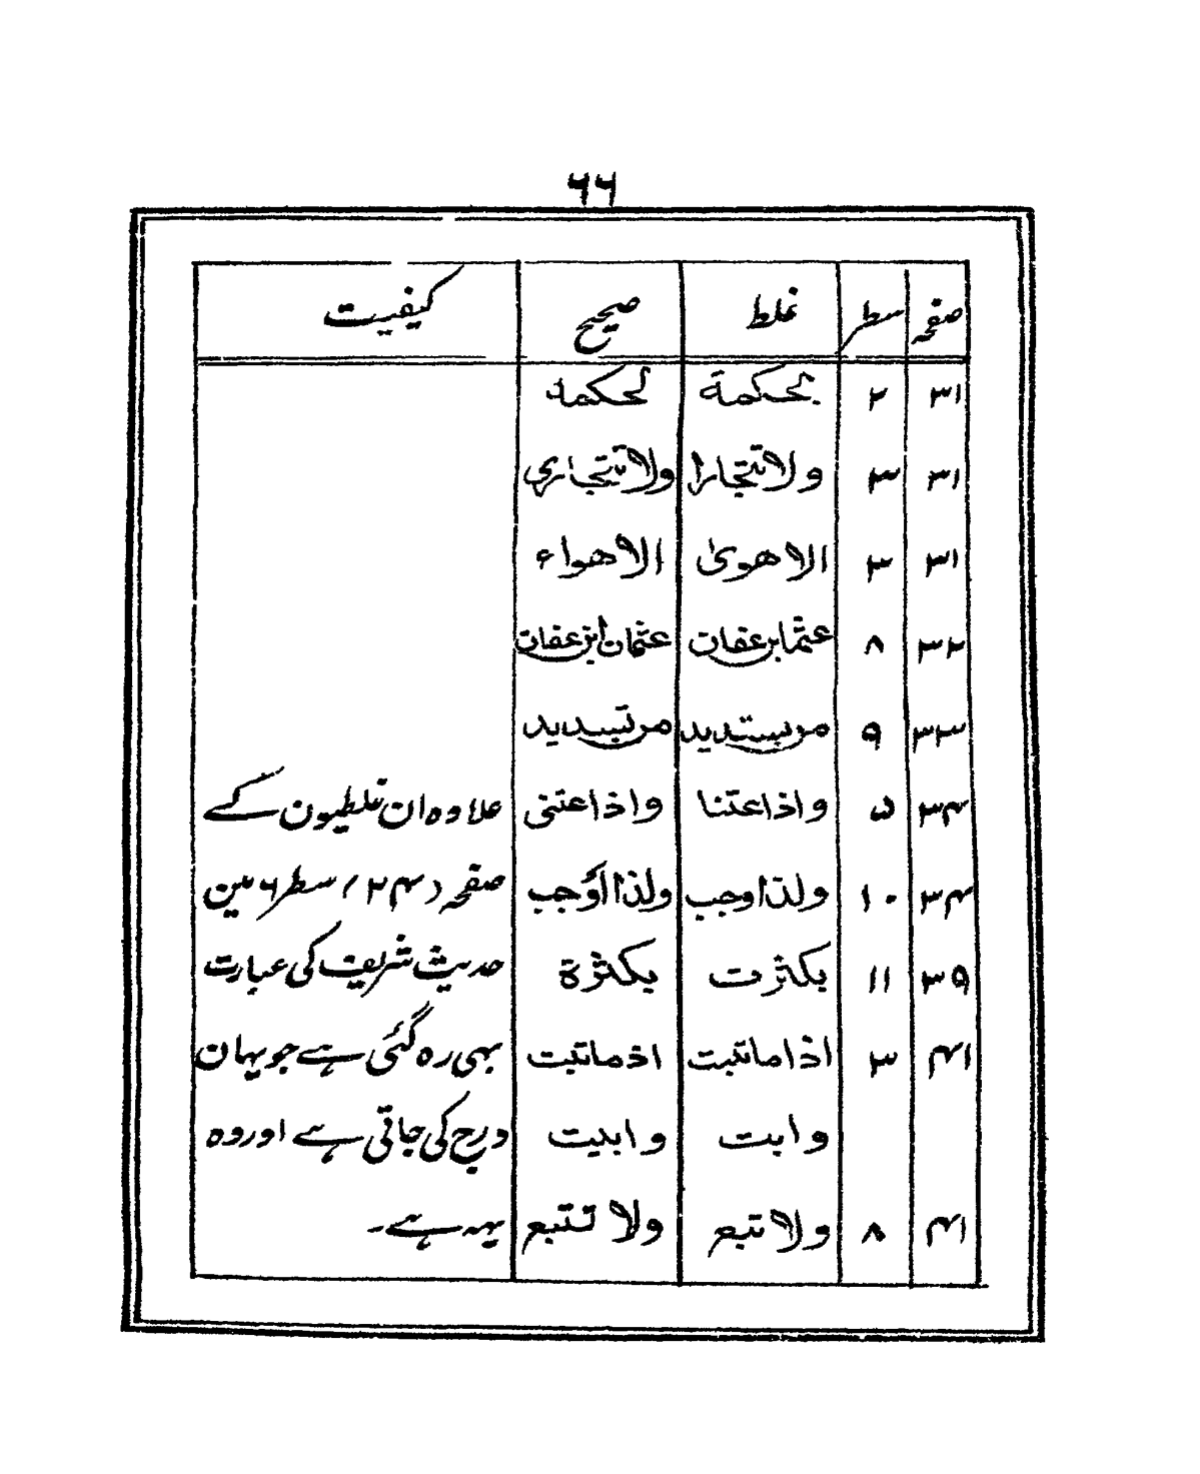 ۶۶
صفحہ سطر غلط صحیح کیفیت
۳۱ ۲ بحکمة لحکمة
۳۱ ۳ ولا تتجارا ولا تتجاری
۳۱ ۳ الاھویٰ الاھواء
۳۲ ۸ عثما بن عفان عثمان ابن عفان
۳۳ ۹ من یستدید من تسدید
۳۴ ۵ واذاعتنا واذاعتنی علاوہ ان غلطیون کے
۳۴ ۱۰ ولذا وجب ولذا اُوجب صفحہ (۲۴) سطر ۶ مین
۳۹ ۱۱ بکثرت بکثرة حدیث شریف کی عبارت
۴۱ ۳ اذا ماتبت اذماتبت بھی رہ گئی ہے جو یہان
وابت وابیت درج کی جاتی ہے اور وہ
۴۱ ۸ ولا تبع ولا تتبع یہہ ہے۔